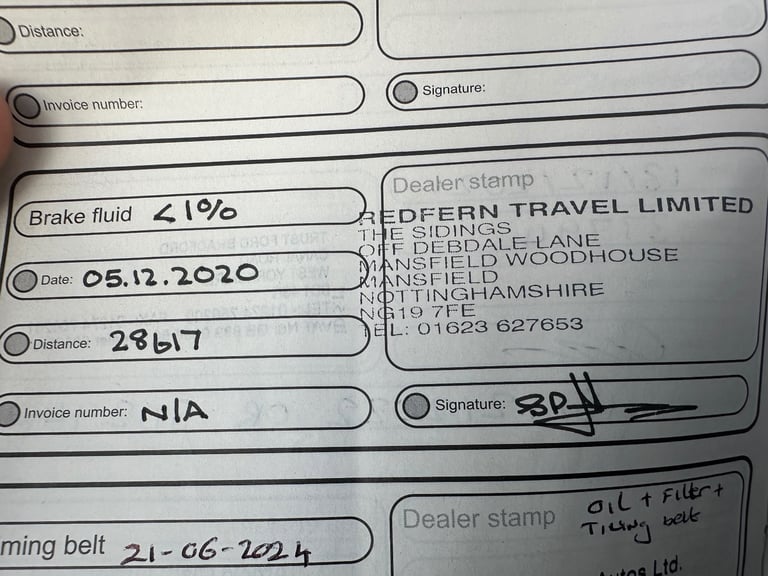 Distance:
Invoice number:
Signature:
Dealer stamp
Brake fluid <1%
REDFERN TRAVEL LIMITED
THE SIDINGS
OFF DEBDALE LANE
MANSFIELD WOODHOUSE
MANSFIELD
NOTTINGHAMSHIRE
NG19 7FE
TEL: 01623 627653
Date: 05.12.2020
Distance: 28617
Invoice number: N/A
Signature:
ming belt 21-06-2024
Dealer stamp
OIL + Filter +
Timing belt
Autos Ltd.